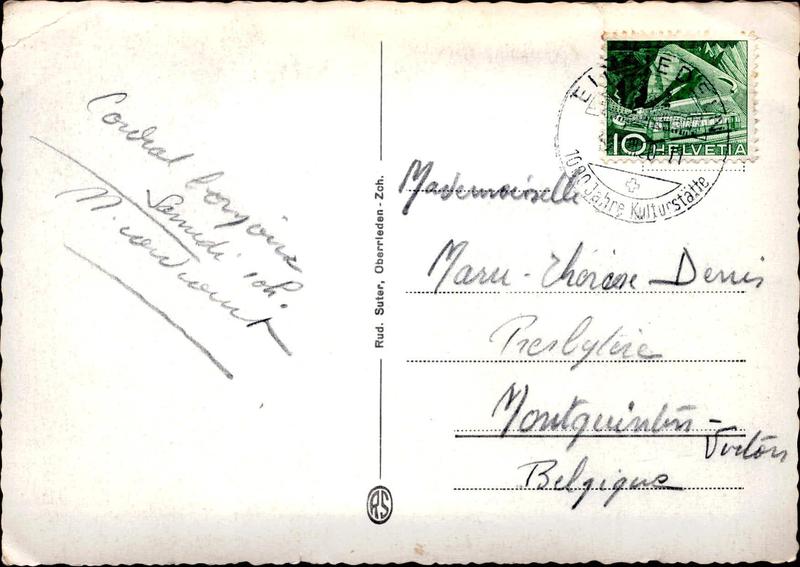 Cordial bonjour
Samedi
Rud. Suter, Oberrieden - Zch.
RS
EINSIEDELN
1000 Jahre Kulturstätte
10 HELVETIA
Mademoiselle
Marie-Thérèse Denis
Presbytère
Montquintin -
Virton
Belgique